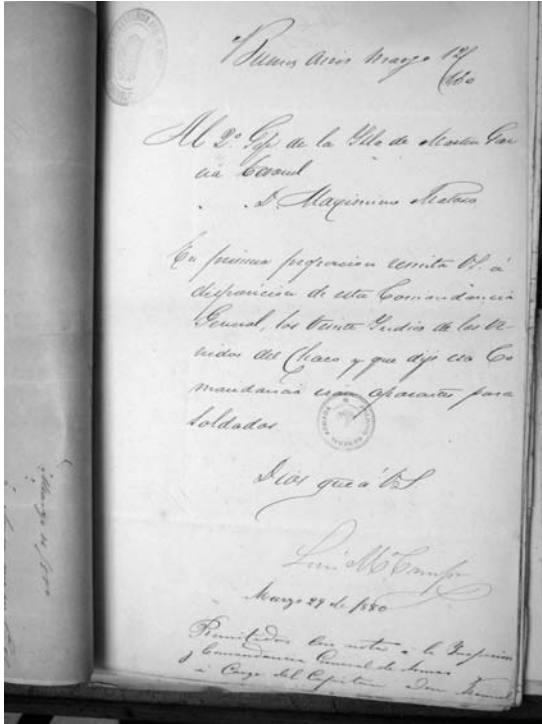 Buenos Aires Marzo 12/880
Al 2º Gefe de la Isla de Martin Gar
cia Coronel
D. Maximino Matoso
En primera proporcion remita VS. á
disposicion de esta Comandancia
General, los veinte Indios de los ve-
nidos del Chaco y que dijo esa Co
mandancia eran aparantes para
soldados
Dios gue á VS
Luis M Campos
Marzo 29 de 1880
Remitidos con nota a la Inspeccion
y Comandancia General de Armas
a Cargo del Capitan Don Manuel
Marzo de 1880